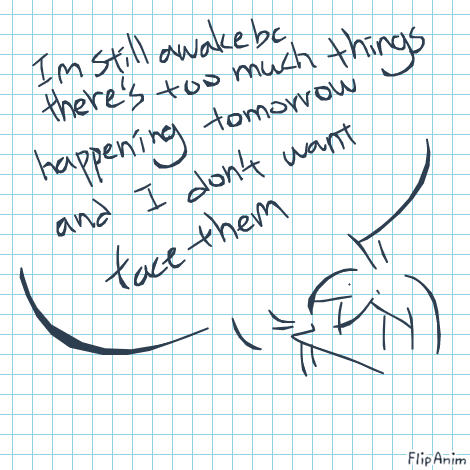 I'm still awake bc
there's too much things
happening tomorrow
and I don't want
face them
FlipAnim